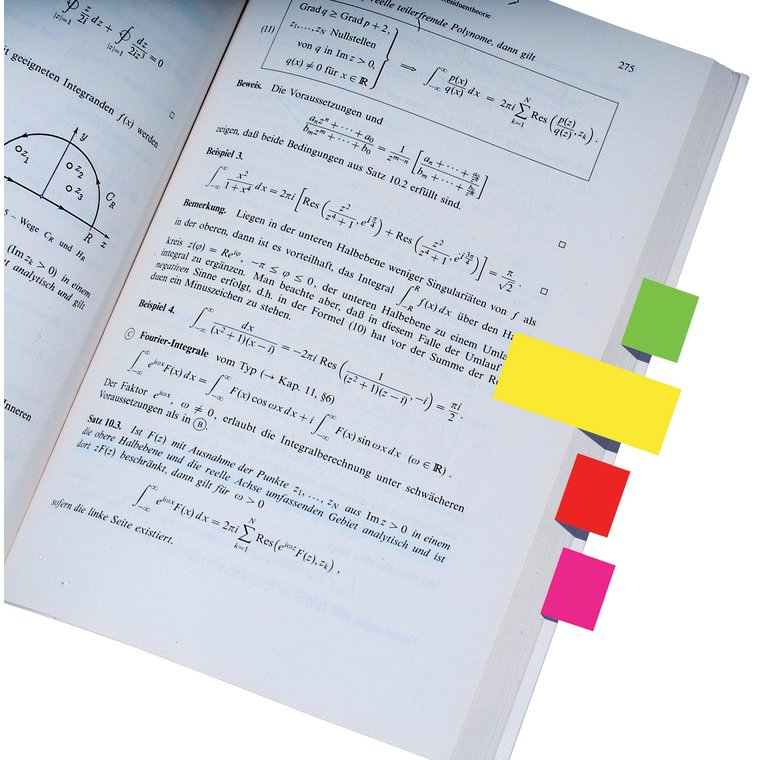 ∮_{|z|=1} z/2i dz + ∮_{|z|=1} dz/2iz³ = 0
geeigneten Integranden f(x) werden
y
z₁
z₂
z₃
C_R
R
z
5 – Wege C_R und H_R
(Im z_k > 0) in einem
t analytisch und gilt
Inneren
Residuentheorie
275
reelle teilerfremde Polynome, dann gilt
(11) Grad q ≥ Grad p + 2,
z₁,…,z_N Nullstellen
von q in Im z > 0,
q(x) ≠ 0 für x ∈ ℝ
⟹ ∫_{-∞}^{∞} p(x)/q(x) dx = 2πi Σ_{k=1}^{N} Res(p(z)/q(z), z_k).
Beweis. Die Voraussetzungen und
(a_n z^n + ⋯ + a_0)/(b_m z^m + ⋯ + b_0) = 1/z^{m-n} [(a_n + ⋯ +)/(b_m + ⋯ +)]
zeigen, daß beide Bedingungen aus Satz 10.2 erfüllt sind.
Beispiel 3.
∫_{-∞}^{∞} x²/(1+x⁴) dx = 2πi [Res(z²/(z⁴+1), e^{iπ/4}) + Res(z²/(z⁴+1), e^{i3π/4})] = π/√2.
Bemerkung. Liegen in der unteren Halbebene weniger Singulariäten von f als
in der oberen, dann ist es vorteilhaft, das Integral ∫_{-R}^{R} f(x) dx über den
kreis z(φ) = Re^{iφ}, -π ≤ φ ≤ 0, der unteren Halbebene zu einem
integral zu ergänzen. Man beachte aber, daß in diesem Falle der Umlauf
negativen Sinne erfolgt, d.h. in der Formel (10) hat vor der Summe der
duen ein Minuszeichen zu stehen.
Beispiel 4.
∫_{-∞}^{∞} dx/((x²+1)(x−i)) = −2πi Res(1/((z²+1)(z−i)), −i) = πi/2.
Ⓒ Fourier-Integrale vom Typ (→ Kap. 11, §6)
∫_{-∞}^{∞} e^{iωx} F(x) dx = ∫_{-∞}^{∞} F(x) cos ωx dx + i ∫_{-∞}^{∞} F(x) sin ωx dx (ω ∈ ℝ).
Der Faktor e^{iωx}, ω ≠ 0, erlaubt die Integralberechnung unter schwächeren
Voraussetzungen als in Ⓑ.
Satz 10.3. Ist F(z) mit Ausnahme der Punkte z₁,…,z_N aus Im z > 0 in einem
die obere Halbebene und die reelle Achse umfassenden Gebiet analytisch und ist
dort zF(z) beschränkt, dann gilt für ω > 0
∫_{-∞}^{∞} e^{iωx} F(x) dx = 2πi Σ_{k=1}^{N} Res(e^{iωz} F(z), z_k),
sofern die linke Seite existiert.